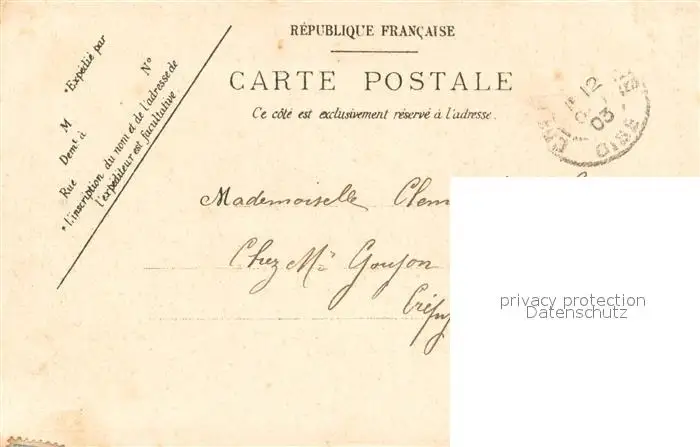 RÉPUBLIQUE FRANÇAISE
CARTE POSTALE
Ce côté est exclusivement réservé à l'adresse.
*Expédié par
M
N°
Demt à
Rue
*L'inscription du nom et de l'adresse de
l'expéditeur est facultative
12
03
OISE
Mademoiselle Clem
Chez Me Goujon
Crépy
privacy protection
Datenschutz